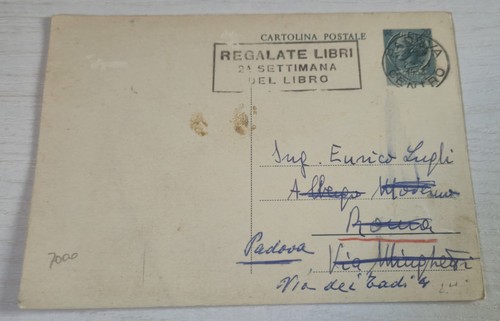 CARTOLINA POSTALE
REGALATE LIBRI
2A SETTIMANA
DEL LIBRO
CENTRO
Ing. Enrico Lugli
Albergo Moderno
Roma
Padova Via Minghetti
Via dei Tadi 4
7000